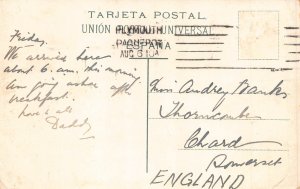 TARJETA POSTAL
UNIÓN POSTAL UNIVERSAL
ESPAÑA
PLYMOUTH
PAQUEBOT
AUG 6
Friday.
We arrived here
about 6 a.m. this morning
Am going ashore after
breakfast.
love to all
Daddy
Miss Audrey Banks
Thorncombe
Chard
Somerset
ENGLAND